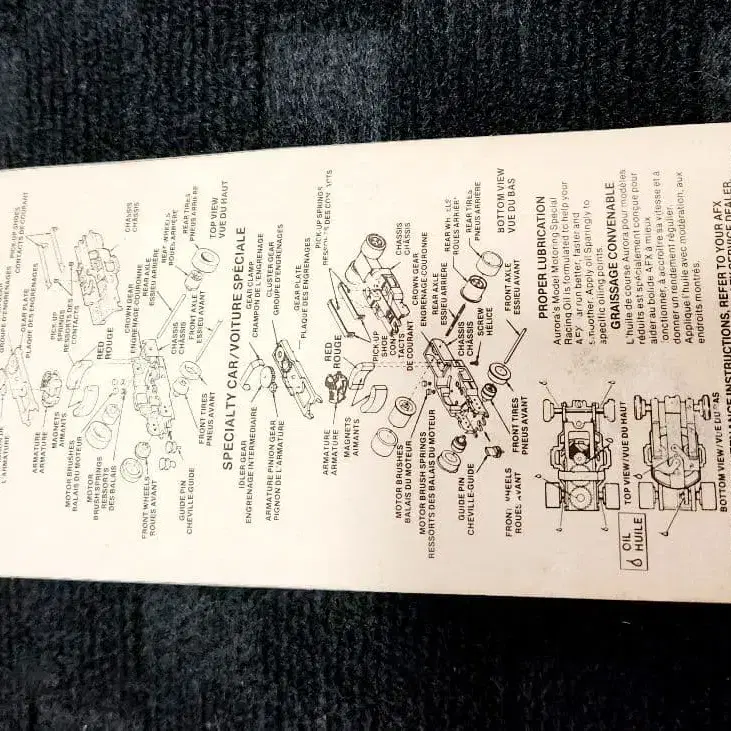 PICK UP SHOES
CONTACTS DE COURANT
GEAR PLATE
PLAQUE DES ENGRENAGES
L'ARMATURE
ARMATURE
ARMATURE
MAGNETS
AIMANTS
PICK UP
SPRINGS
RESSORTS DES
CONTACTS
CHASSIS
CHÂSSIS
RED
ROUGE
MOTOR BRUSHES
BALAIS DU MOTEUR
CROWN GEAR
ENGRENAGE COURONNE
REAR AXLE
ESSIEU ARRIÈRE
REAR WHEELS
ROUES ARRIÈRE
REAR TIRES
PNEUS ARRIÈRE
MOTOR
BRUSH SPRINGS
RESSORTS
DES BALAIS
CHASSIS
CHÂSSIS
FRONT AXLE
ESSIEU AVANT
TOP VIEW
VUE DU HAUT
FRONT WHEELS
ROUES AVANT
GUIDE PIN
CHEVILLE-GUIDE
FRONT TIRES
PNEUS AVANT
SPECIALTY CAR/VOITURE SPÉCIALE
IDLER GEAR
ENGRENAGE INTERMEDIAIRE
GEAR CLAMP
CRAMPON DE L'ENGRENAGE
ARMATURE PINION GEAR
PIGNON DE L'ARMATURE
CLUSTER GEAR
GROUPE D'ENGRENAGES
GEAR PLATE
PLAQUE DES ENGRENAGES
PICK UP SPRINGS
ARMATURE
ARMATURE
RED
ROUGE
MAGNETS
AIMANTS
PICK UP
SHOE
CON-
TACTS
DE COURANT
CHASSIS
CHÂSSIS
MOTOR BRUSHES
BALAIS DU MOTEUR
CROWN GEAR
ENGRENAGE COURONNE
MOTOR BRUSH SPRINGS
RESSORTS DES BALAIS DU MOTEUR
REAR AXLE
ESSIEU ARRIÈRE
REAR
ROUES ARRIÈRE
REAR TIRES
PNEUS ARRIÈRE
GUIDE PIN
CHEVILLE-GUIDE
CHASSIS
CHÂSSIS
SCREW
HELICE
BOTTOM VIEW
VUE DU BAS
FRONT WHEELS
ROUES AVANT
FRONT TIRES
PNEUS AVANT
FRONT AXLE
ESSIEU AVANT
PROPER LUBRICATION
Aurora's Model Motoring Special
Racing Oil is formulated to help your
AFX car run better, faster and
smoother. Apply oil sparingly to
specific oiling points.
GRAISSAGE CONVENABLE
L'huile de course Aurora pour modèles
réduits est spécialement conçue pour
aider au bolide AFX à mieux
fonctionner, à accroître sa vitesse et à
donner un rendement régulier.
Applique l'huile avec modération, aux
endroits montrés.
OIL
HUILE
TOP VIEW/VUE DU HAUT
BOTTOM VIEW/VUE DU BAS
INSTRUCTIONS, REFER TO YOUR AFX
SERVICE DEALER.